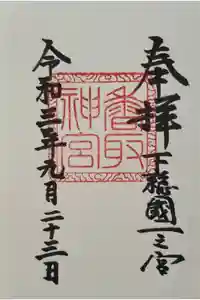 奉拝 下總國一之宮
香取神宮
令和三年九月二十三日